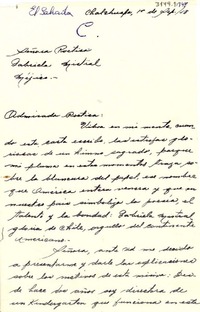 El Salvador
Chalchuapa, 1º de Sep/48
C.
Señora Poetisa
Gabriela Mistral
Méjico.
Admirada Poetisa:
Vibra en mi mente, cuan
do esta carta escribo, las estrofas glo
riosas de un himno sagrado, porque
mi pluma en estos momentos traza so
bre la blancura del papel, ese nombre
que América entera venera y que en
nuestro país simboliza la poesía, el
talento y la bondad: Gabriela Mistral
gloria de Chile, orgullo del continente
Americano.
Señora, ante Ud me decido
a presentarme y darle las explicaciones
sobre los motivos de esta misiva: Des
de hace dos años soy directora de
un Kindergarten que funciona en esta